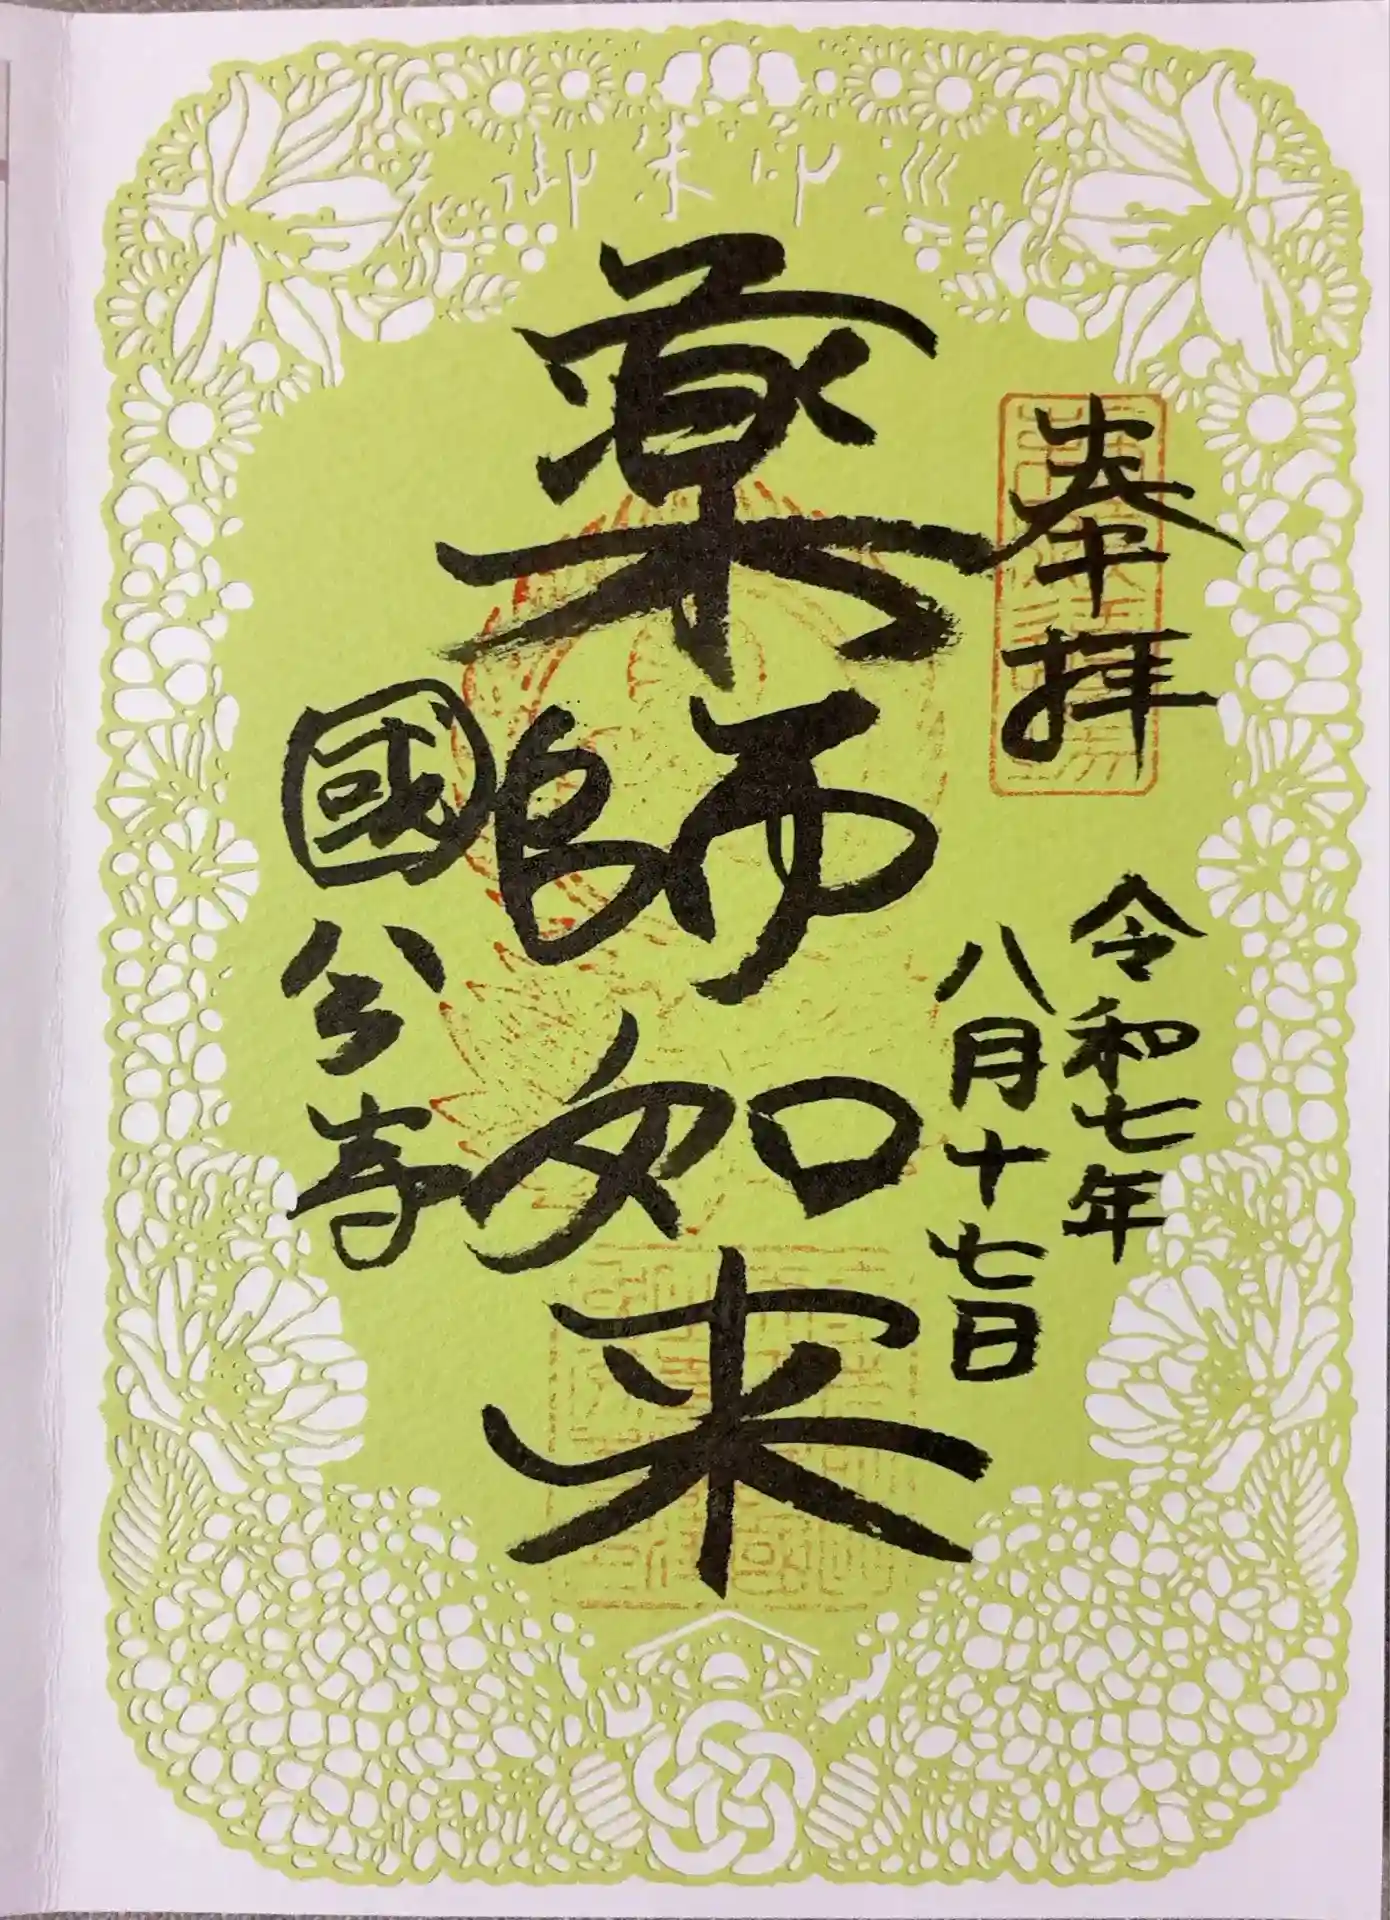 花御朱印巡
奉拝
令和七年
八月十七日
薬師如来
國分寺